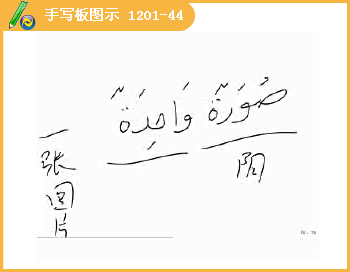 手写板图示 1201-44
صُورَةٌ وَاحِدَةٌ
阴
一张图片